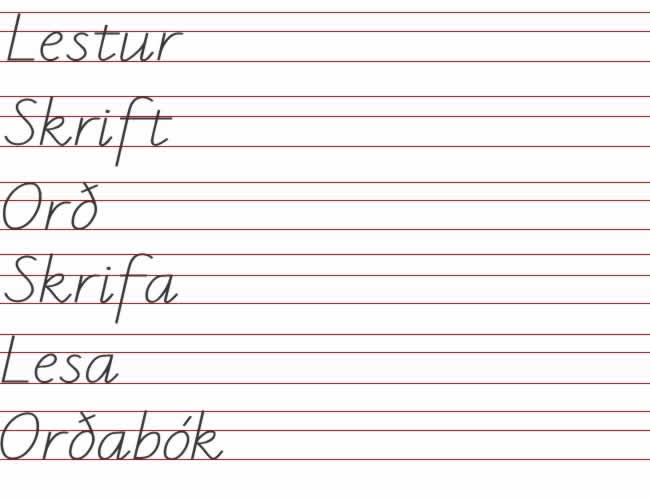 Lestur
Skrift
Orð
Skrifa
Lesa
Orðabók